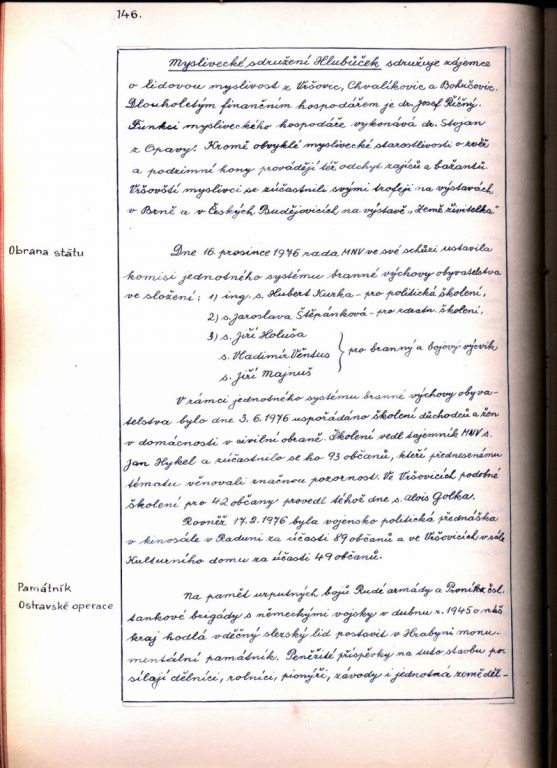 146.
Myslivecké sdružení Hlubůček sdružuje zájemce
o lidovou myslivost z Vršovic, Chvalíkovic a Bohučovic.
Dlouholetým finančním hospodářem je dr. Josef Říčný.
Funkci mysliveckého hospodáře vykonává dr. Stojan
z Opavy. Kromě obvyklé myslivecké starostlivosti o zvěř
a podzimní hony provádějí též odchyt zajíců a bažantů.
Vršovští myslivci se zúčastnili svými trofeji na výstavách
v Brně a v Českých Budějovicích na výstavě „Země živitelka."
Obrana státu
Dne 16. prosince 1976 rada MNV ve své schůzi ustavila
komisi jednotného systému branné výchovy obyvatelstva
ve složení: 1) ing. s. Hubert Kurka - pro politická školení,
2) s. Jaroslava Štěpánková - pro zdratn. školení,
3) s. Jiří Holuša
s. Vladimír Věntus } pro branný a bojový výcvik
s. Jiří Majnuš
V rámci jednotného systému branné výchovy obyva-
telstva bylo dne 3. 6. 1976 uspořádáno školení důchodců a žen
v domácnosti v civilní obraně. Školení vedl tajemník MNV s.
Jan Hykel a zúčastnilo se ho 93 občanů, kteří přednesenému
tématu věnovali značnou pozornost. Ve Vršovicích podobné
školení pro 42 občany provedl téhož dne s. Alois Golka.
Rovněž 17. 2. 1976 byla vojensko politická přednáška
v kinosále v Raduni za účasti 89 občanů a ve Vršovicích v sále
Kulturního domu za účasti 49 občanů.
Památník
Ostravské operace
Na pamět urputných bojů Rudé armády a První čsl.
tankové brigády s německými vojsky v dubnu r. 1945 o náš
kraj hodlá vděčný slezský lid postavit v Hrabyni monu-
mentální památník. Peněžité příspěvky na tuto stavbu po-
sílají dělníci, rolníci, pionýři, závody i jednotná zeměděl-